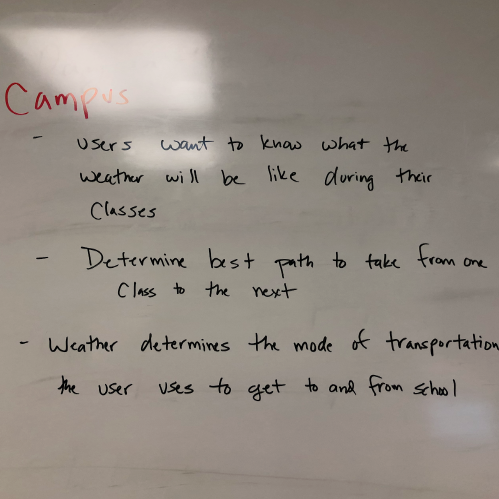 Campus
- Users want to know what the
weather will be like during their
Classes
- Determine best path to take from one
Class to the next
- Weather determines the mode of transportation
the user uses to get to and from school